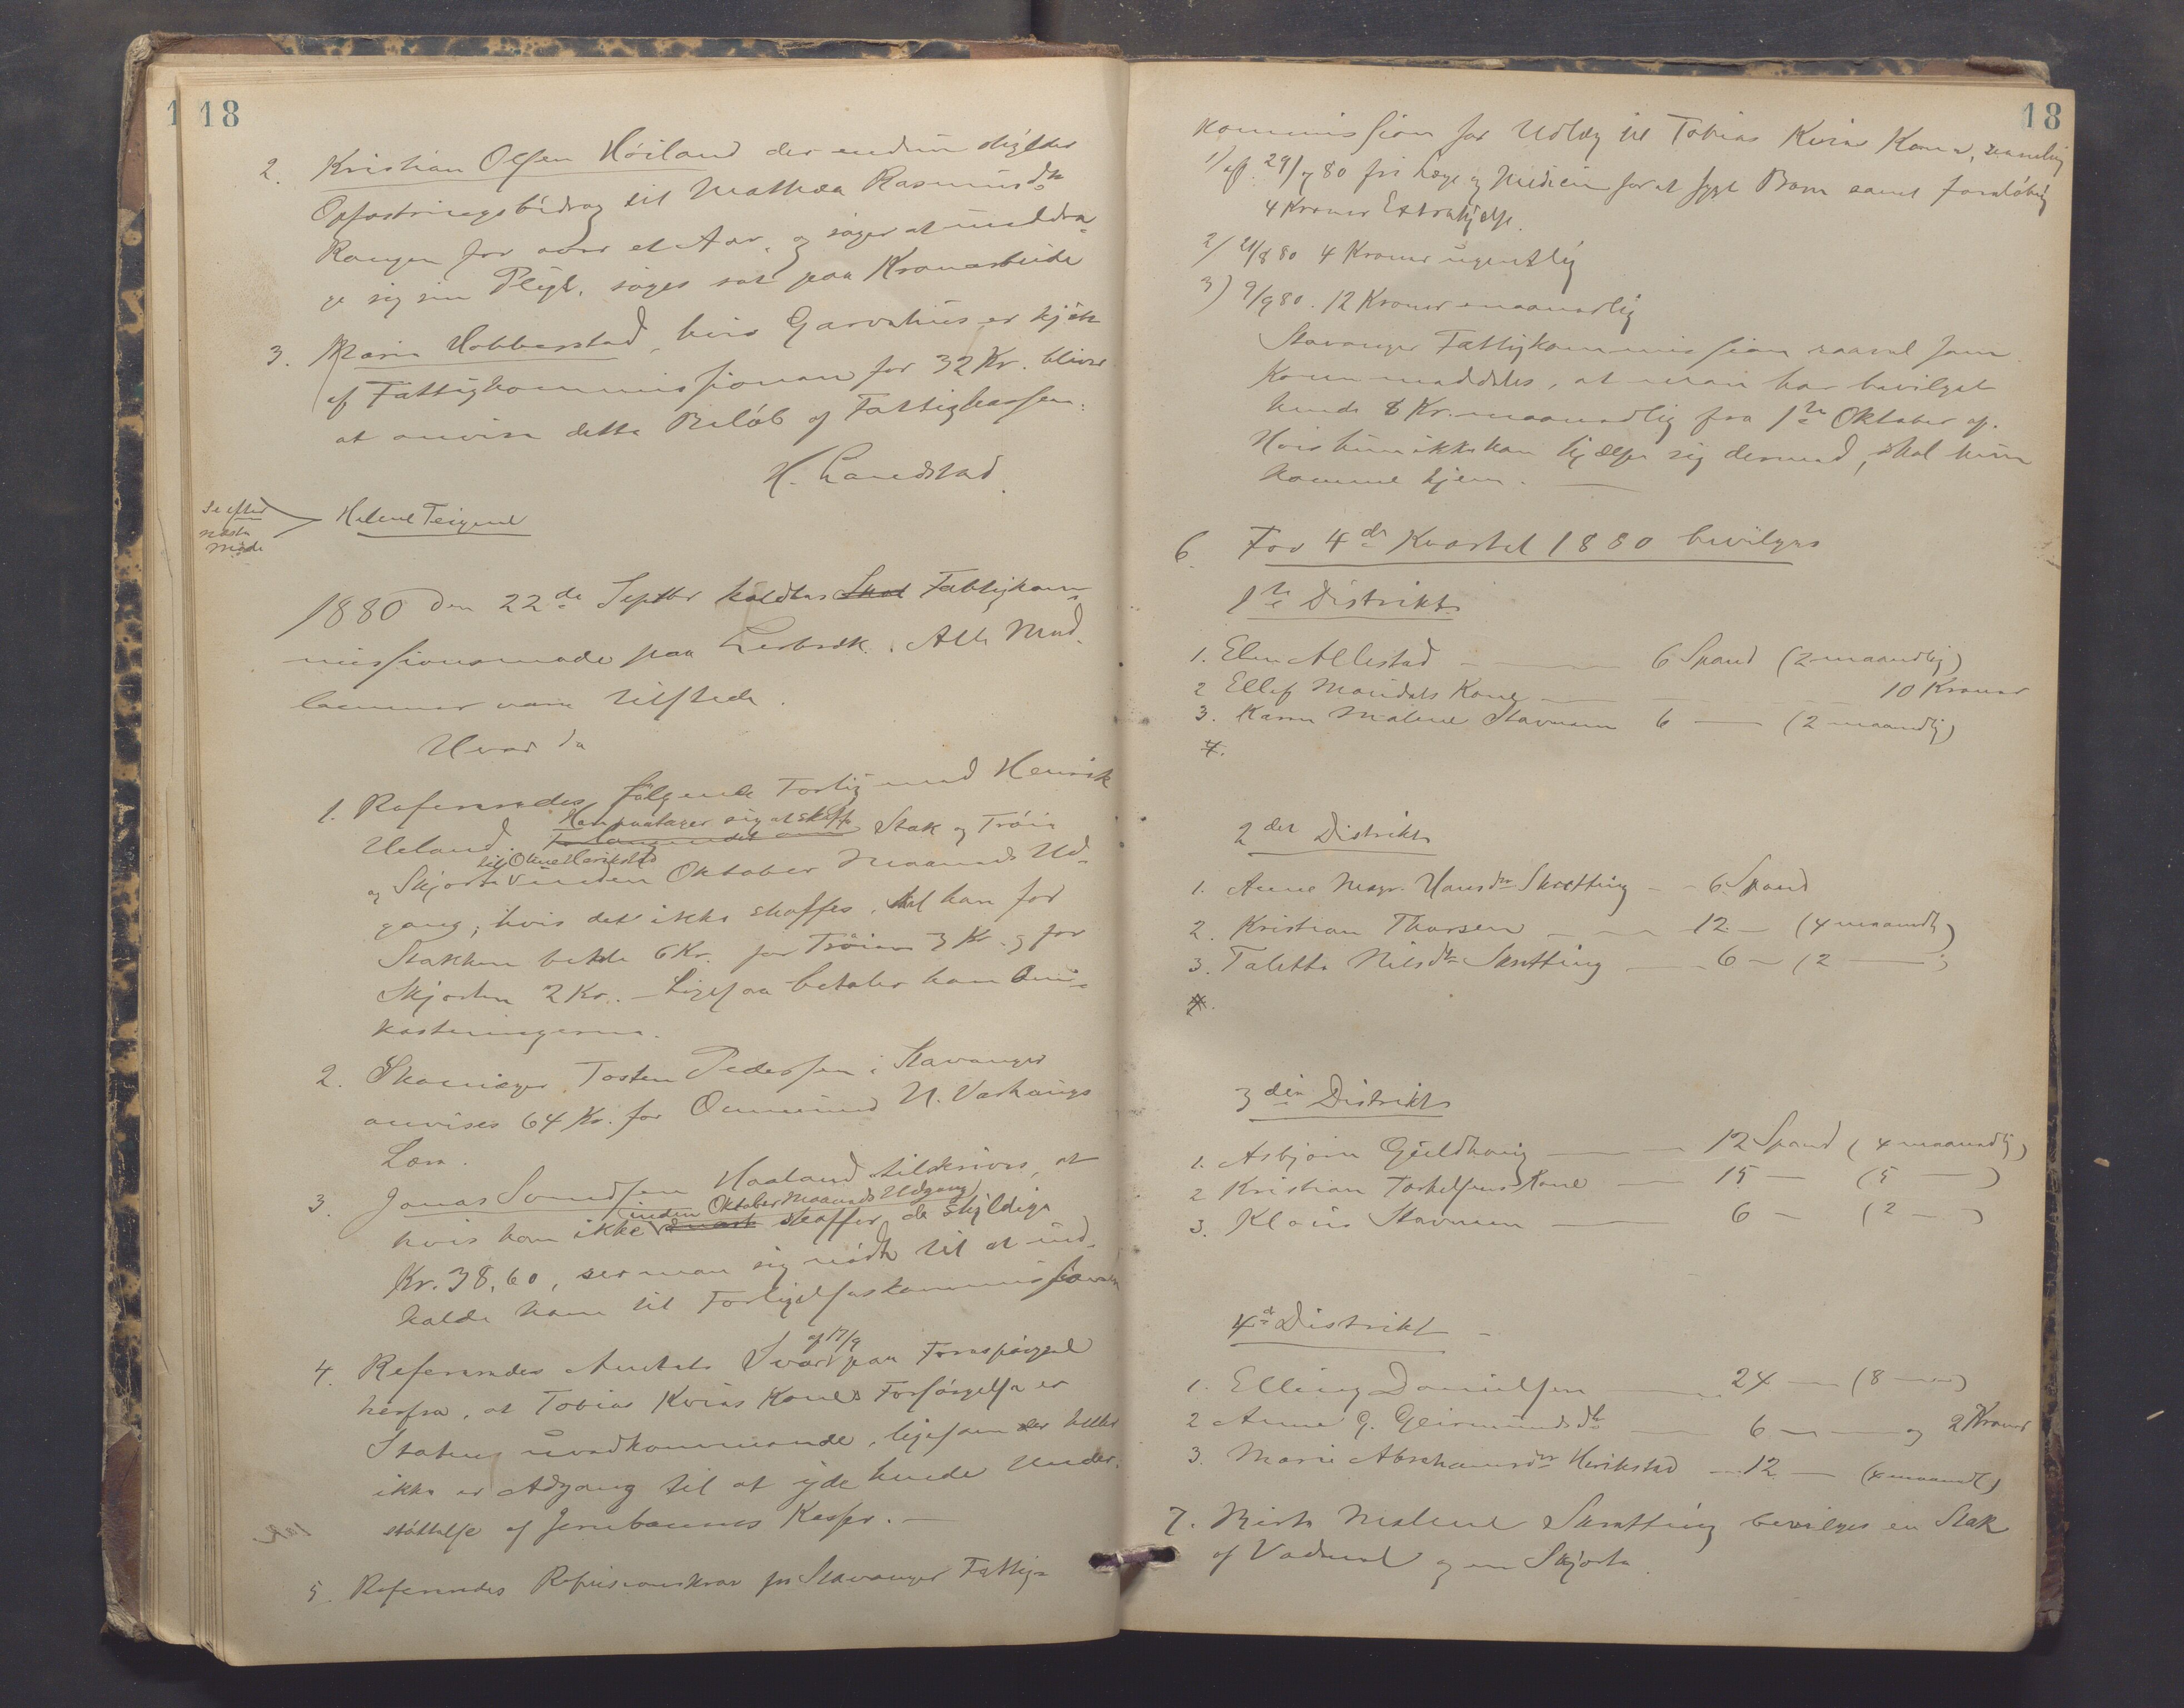 18
2. Kristian Olsen Höiland der endnu skylder
Opfostringsbidrag til Mathea Rasmusdtr
Rongen for over et Aar, og söger at unddra-
ge sig sin Pligt, söges sat paa Kronarbeide
3. Maria Hobberstad, hvis Garvehus er kjöbt
af Fattigkommissionen for 32 Kr. bliver
at anvise dette Belöb af Fattigkassen.
H. Landstad
Se efter
næste
Möde
Helene Teigene
1880 den 22de Septbr holdtes Skol Fattigkom-
missionsmøde paa Lerbræk. Alle Med-
lemmer vare tilstede.
Hvor da
1. Refereredes følgende Forlig med Henrik
Ueland. Han paatager sig at skaffe Stak og Tröie
til Oline Herikstad
og Skjorte inden Oktober Maaneds Ud-
gang; hvis det ikke skaffes, skal han for
Stakken betale 6 Kr. for Tröien 3 Kr. og for
Skjorten 2 Kr. – Ligesaa betaler han Om-
kostningerne.
2. Skomager Tosten Pedersen i Stavanger
anvises 64 Kr. for Ommund N. Varhaugs
Lære.
3. Jonas Svendsen Haaland tilskrives, at
inden Oktober Maaneds Udgang
hvis han ikke snart skaffer de skyldige
Kr. 38,60, ser man sig nødt til at ind-
kalde ham til Forligelseskommissionen
4. Refereredes Amtets Svar af 17/9 paa Forespörgsel
herfra, at Tobias Kvias Kones Forsörgelse er
Staten uvedkommende, ligesom der heller
ikke er Adgang til at yde hende Under-
støttelse af Jernbanens Kasse. –
5. Refereredes Refusionskrav fra Stavanger Fattig-
18
kommission for Udlæg til Tobias Kvias Kone, nemlig
1) af 29/7 80 fri Læge og Medicin for et sygt Barn samt foreløbig
4 Kroner Extrahjælp.
2/ 21/8 80 4 Kroner ugentlig
3) 9/9 80. 12 Kroner maanedlig
Stavanger Fattigkommission saavel som
Konen meddeles, at man har bevilget
hende 8 Kr. maanedlig fra 1ste Oktober af.
Hvis hun ikke kan hjælpe sig dermed, skal hun
komme hjem. –
6. For 4de Kvartal 1880 bevilges
1ste Distrikt
1. Elen Allestad — 6 Spand (2 maanedlig)
2 Ellef Maudals Kone — 10 Kroner
3. Karen Malene Stavnem 6 — (2 maanedlig)
4.
2det Distrikt
1. Anne Margr. Hansdtr Skretting — 6 Spand
2. Kristian Thorsen — 12 — (4 maanedl)
3. Taletta Nilsdtr Skretting — 6 — (2 — )
4.
3die Distrikt
1. Asbjörn Guldhaug — 12 Spand (4 maanedlig)
2 Kristian Torkelsens Kone — 15 — (5 — )
3. Klaus Stavnem — 6 — (2 — )
4de Distrikt
1. Elling Danielsen — 24 — (8 — )
2 Anne G. Geirmundsdtr — 6 — og 2 Kroner
3. Marie Abrahamsdtr Herikstad — 12 — (4 maanedl)
7. Berta Malene Skretting bevilges en Stak
af Vadmel og en Skjorte.